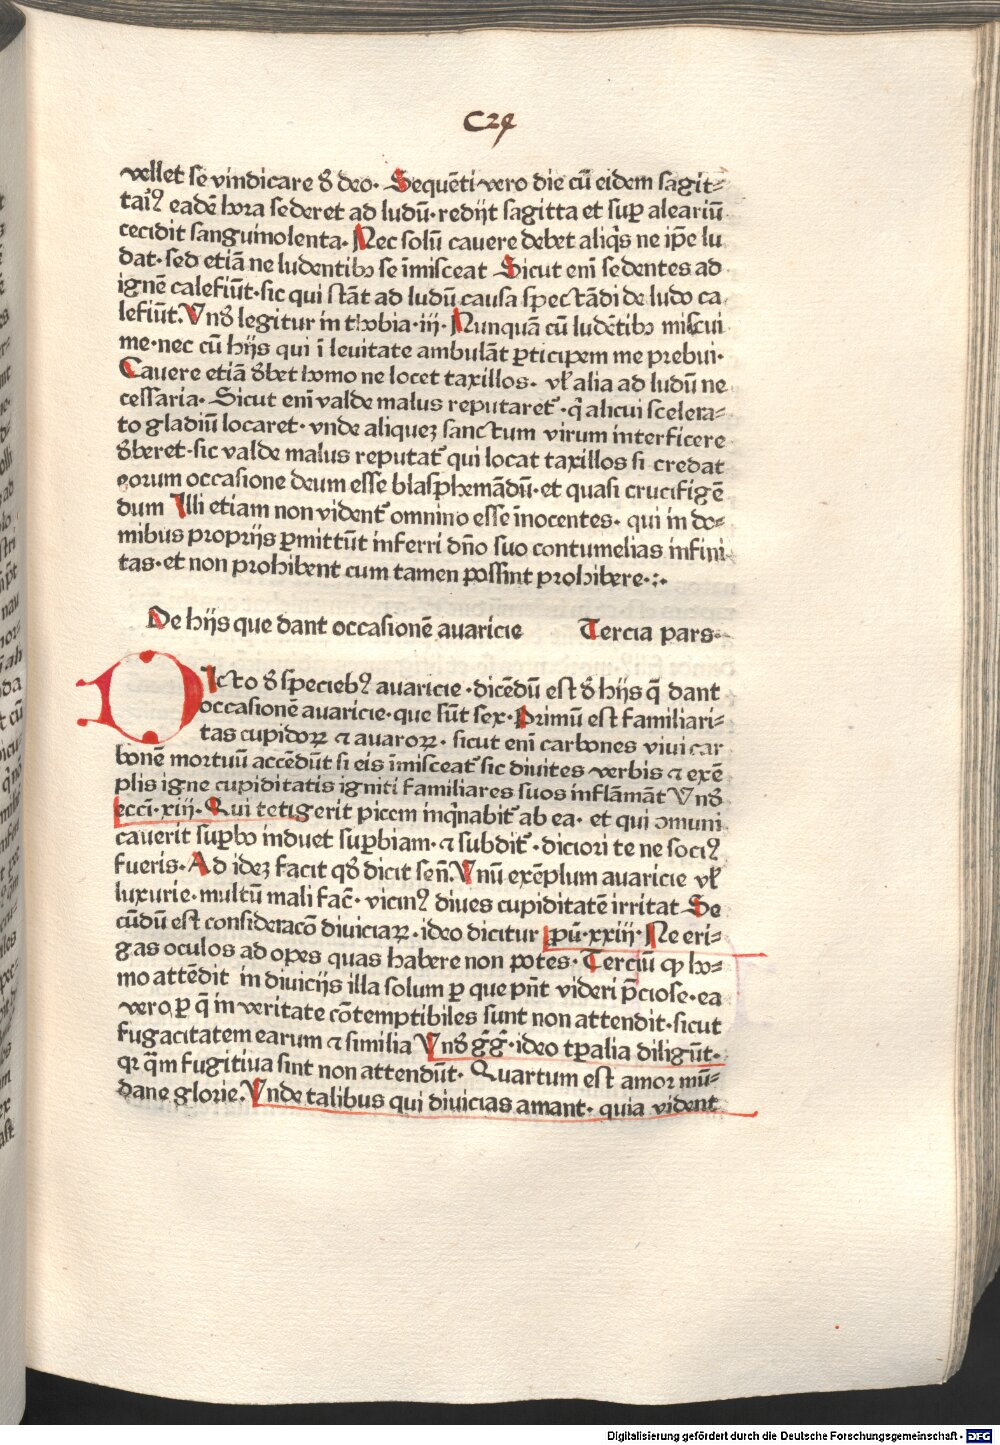 C24
vellet se vindicare ð deo· Sequēti vero die cū eidem sagit⸗
taiꝰ eadē hora sederet ad ludū· redijt sagitta et sup̱ aleariū
cecidit sanguinolenta· Nec solū cauere debet aliq̄s ne ip̄e lu
dat· sed etiā ne ludentibꝫ se īmisceat Sicut enī sedentes ad
ignē calefiūt· sic qui stāt ad ludū causa spectādi de ludo ca
lefiūt. Vnð legitur in thobia· iij· Nunquā cū ludētibꝫ miscui
me· nec cū hijs qui ī leuitate ambulāt ꝑticipem me prebui·
Cauere etiā ðbet homo ne locet taxillos· vl̄ alia ad ludū ne
cessaria· Sicut enī valde malus reputaret᷑· q̄ alicui scelera⸗
to gladiū locaret· vnde aliqueꝫ sanctum virum interficere
ðberet· sic valde malus reputat᷑ qui locat taxillos si credat
eorum occasione deum esse blasphemādū· et quasi crucifigē
dum Illi etiam non vident᷑ omnino esse īnocentes· qui in do⸗
mibus proprijs ꝑmittūt inferri dn̄o suo contumelias infini
tas· et non prohibent cum tamen possint prohibere·:·
De hijs que dant occasionē auaricie Tercia pars·
DIcto ð speciebꝰ auaricie· dicēdū est ð hijs q̄ dant
occasionē auaricie· que sūt sex· Primū est familiari⸗
tas cupidoꝝ ⁊ auaroꝝ· sicut enī carbones viui car
bonē mortuū accēdūt si eis īmisceat᷑ sic diuites verbis ⁊ exē
plis igne cupiditatis igniti familiares suos inflāmāt Vnð
ecci· xiii· Qui tetigerit picem inq̄nabit᷑ ab ea· et qui ꝯmuni
cauerit suꝑbo induet suꝑbiam· ⁊ subdit᷑· diciori te ne sociꝰ
fueris· Ad ideꝫ facit qð dicit sen̄. Vnū exēplum auaricie vl̄
luxurie· multū mali fac̄· vicinꝰ diues cupiditatē irritat Se
cūdū est consideracō diuiciaꝝ· ideo dicitur ꝓū· xxiij· Ne eri⸗
gas oculos ad opes quas habere non potes· Terciū ꝙ ho⸗
mo attēdit in diuicijs illa solum ꝑ que pn̄t videri p̄ciose· ea
vero ꝑ q̄ in veritate cōtemptibiles sunt non attendit· sicut
fugacitatem earum ⁊ similia Vnð ḡḡ· ideo tꝑalia diligūt·
qꝛ q̄m fugitiua sint non attendūt· Quartum est amor mū⸗
dane glorie. Vnde talibus qui diuicias amant· quia vident
Digitalisierung gefördert durch die Deutsche Forschungsgemeinschaft - DFG